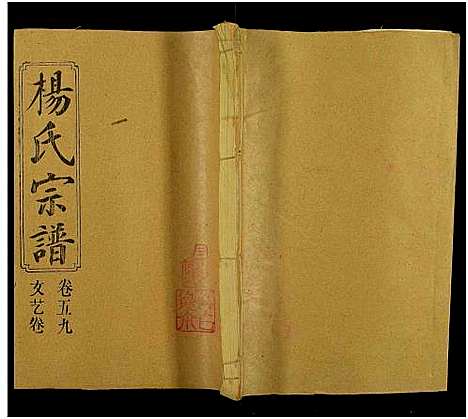 楊氏宗譜
卷五九
文艺卷